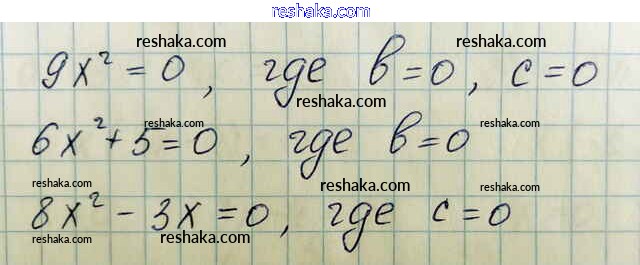 reshaka.com
9x² = 0, где в=0, с=0
reshaka.com reshaka.com reshaka.com
reshaka.com
6x² + 5 = 0, где в=0
reshaka.com reshaka.com reshaka.com
reshaka.com reshaka.com reshaka.com
8x² - 3x = 0, где с=0
reshaka.com reshaka.com reshaka.com